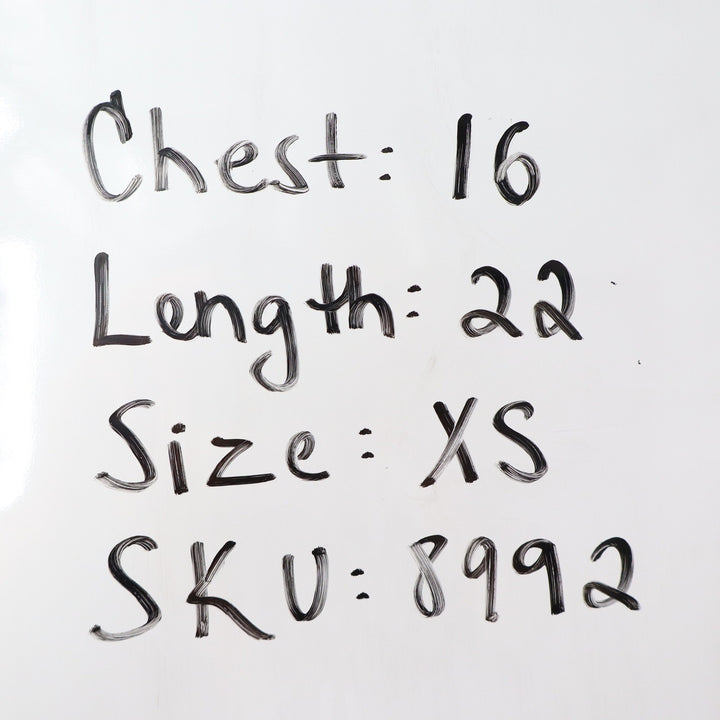 Chest: 16
Length: 22
Size: XS
SKU: 8992